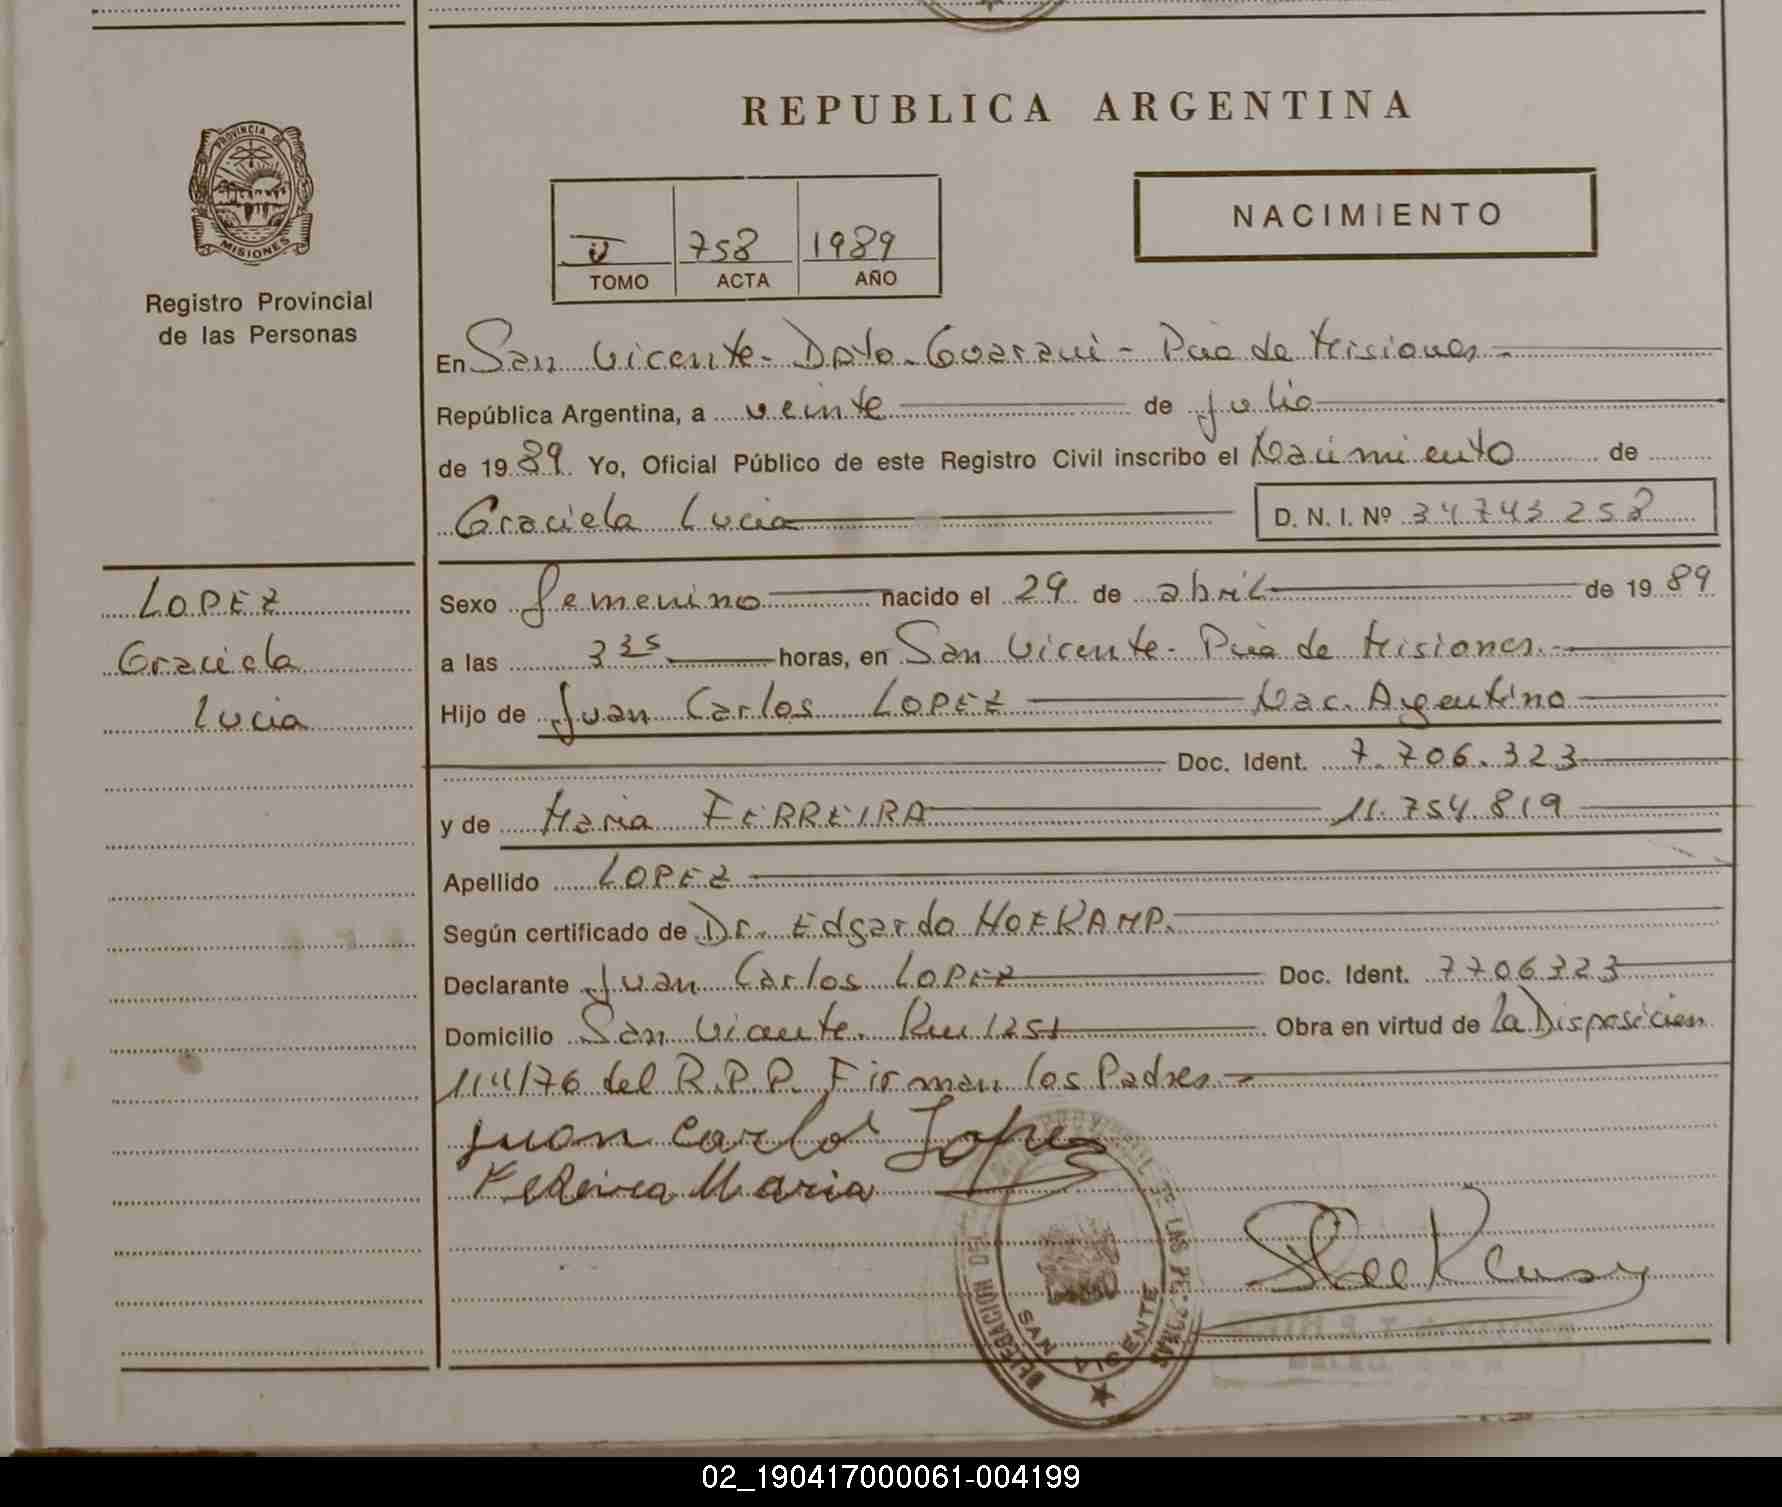 PROVINCIA DE
MISIONES
Registro Provincial
de las Personas
LOPEZ
Graciela
Lucia
REPUBLICA ARGENTINA
NACIMIENTO
758 1989
TOMO ACTA AÑO
En San Vicente - Dpto. Guarani - Pcia de Misiones
República Argentina, a veinte de Julio
de 1989 Yo, Oficial Público de este Registro Civil inscribo el Nacimiento de
Graciela Lucia D. N. I. Nº 34743258
Sexo femenino nacido el 29 de abril de 1989
a las 3 35 horas, en San Vicente - Pcia de Misiones.
Hijo de Juan Carlos LOPEZ Nac. Argentino
Doc. Ident. 7.706.323
y de Maria FERREIRA 11.754.819
Apellido LOPEZ
Según certificado de Dr. Edgardo HOEKAMP.
Declarante Juan Carlos LOPEZ Doc. Ident. 7706323
Domicilio San Vicente. Km 1251 Obra en virtud de la Disposicion
114/76 del R.P.P. Firman los Padres -
Juan Carlos Lopez
Fereira Maria
DELEGACION DE LAS PERSONAS
SAN VICENTE
02_190417000061-004199